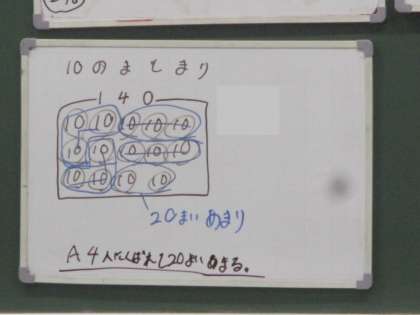 10のまとまり
140
10 10 10 10 10
10 10 10 10 10
10 10 10 10
20まいあまり
A 4人にくばれて20まいあまる。